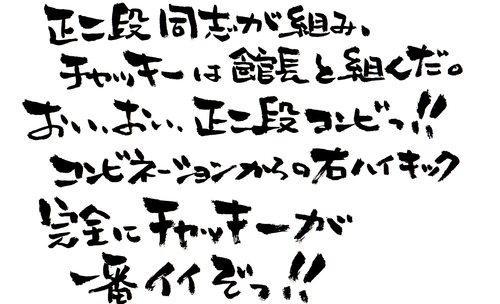 正二段同志が組み、
チャッキーは館長と組くだ。
おい、おい、正二段コンビっ!!
コンビネーションから。右ハイキック
完全にチャッキーが
一番イイぞっ!!